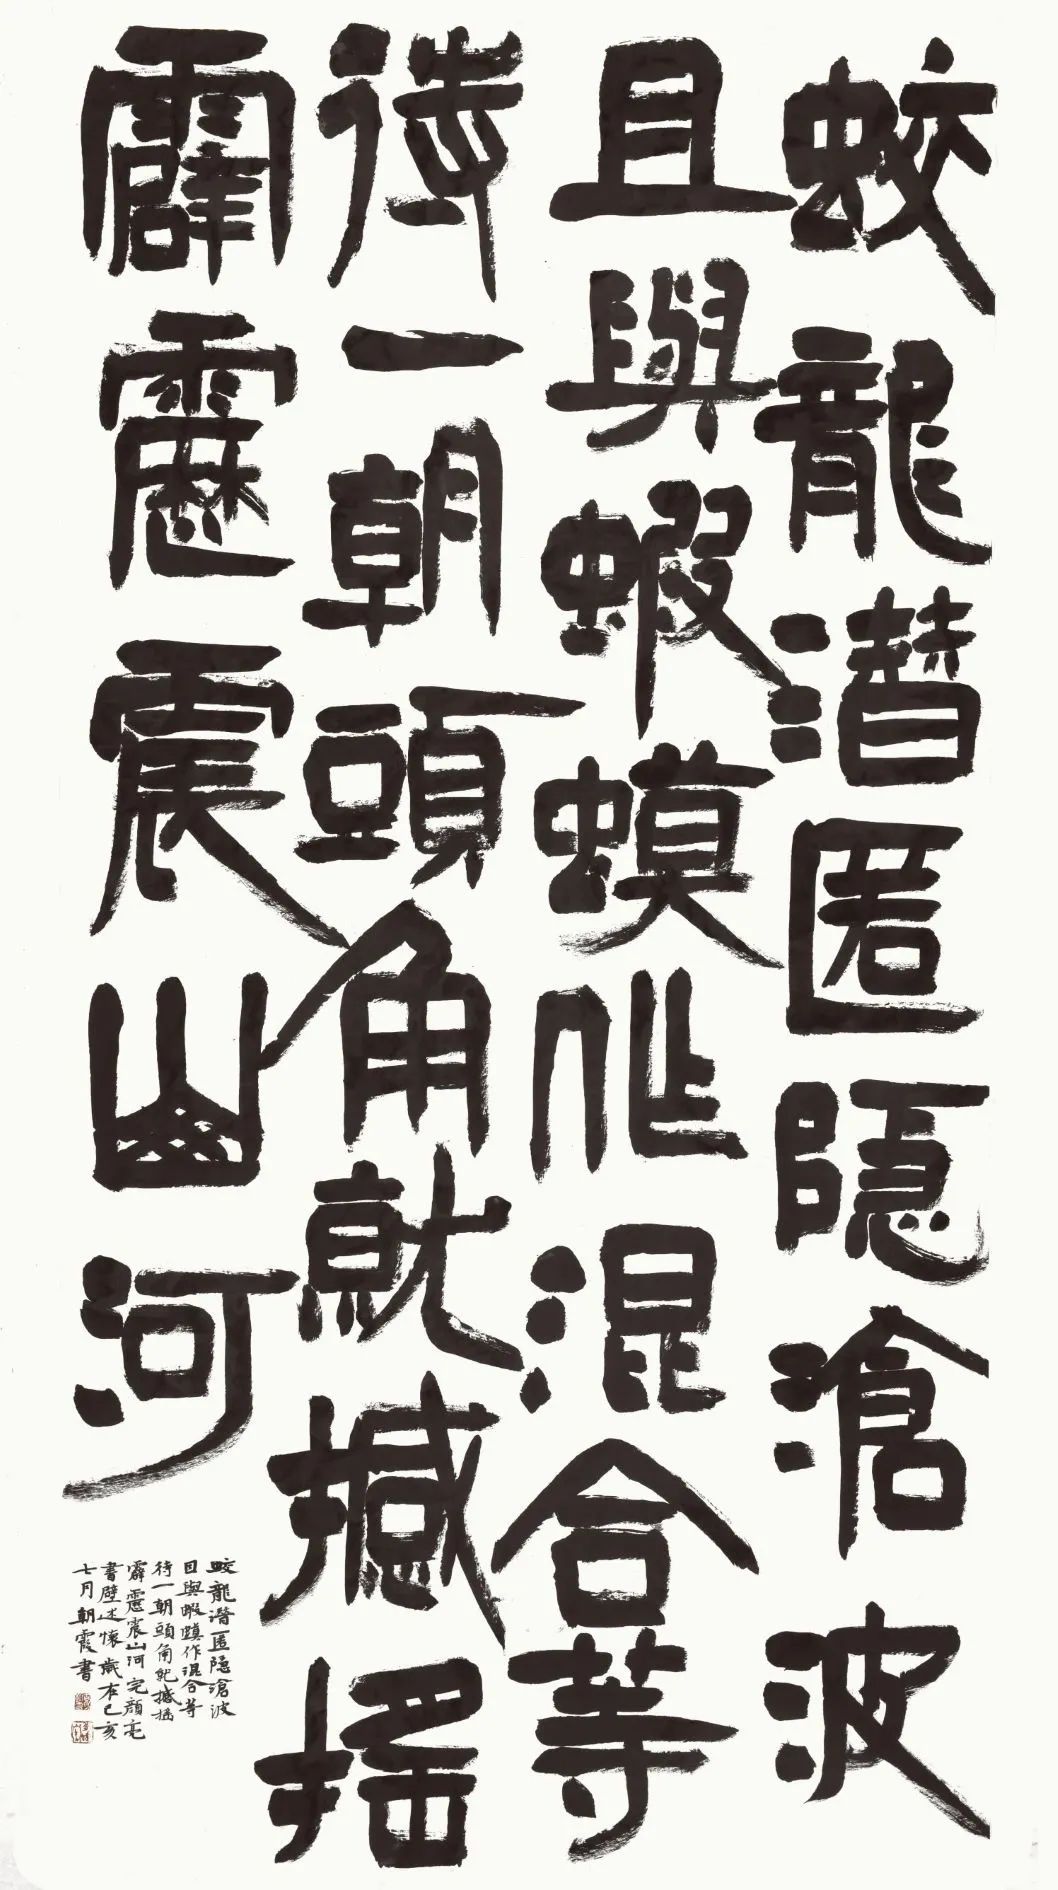 蛟龍潛匿隱滄波
且與蝦蟆作混合等
待一朝頭角就撼搖
霹靂震山河
蛟龍潛匿隱滄波
且與蝦蟆作混合等
待一朝頭角就撼搖
霹靂震山河完顏亮
書壁述懷歲在己亥
七月朝霞書